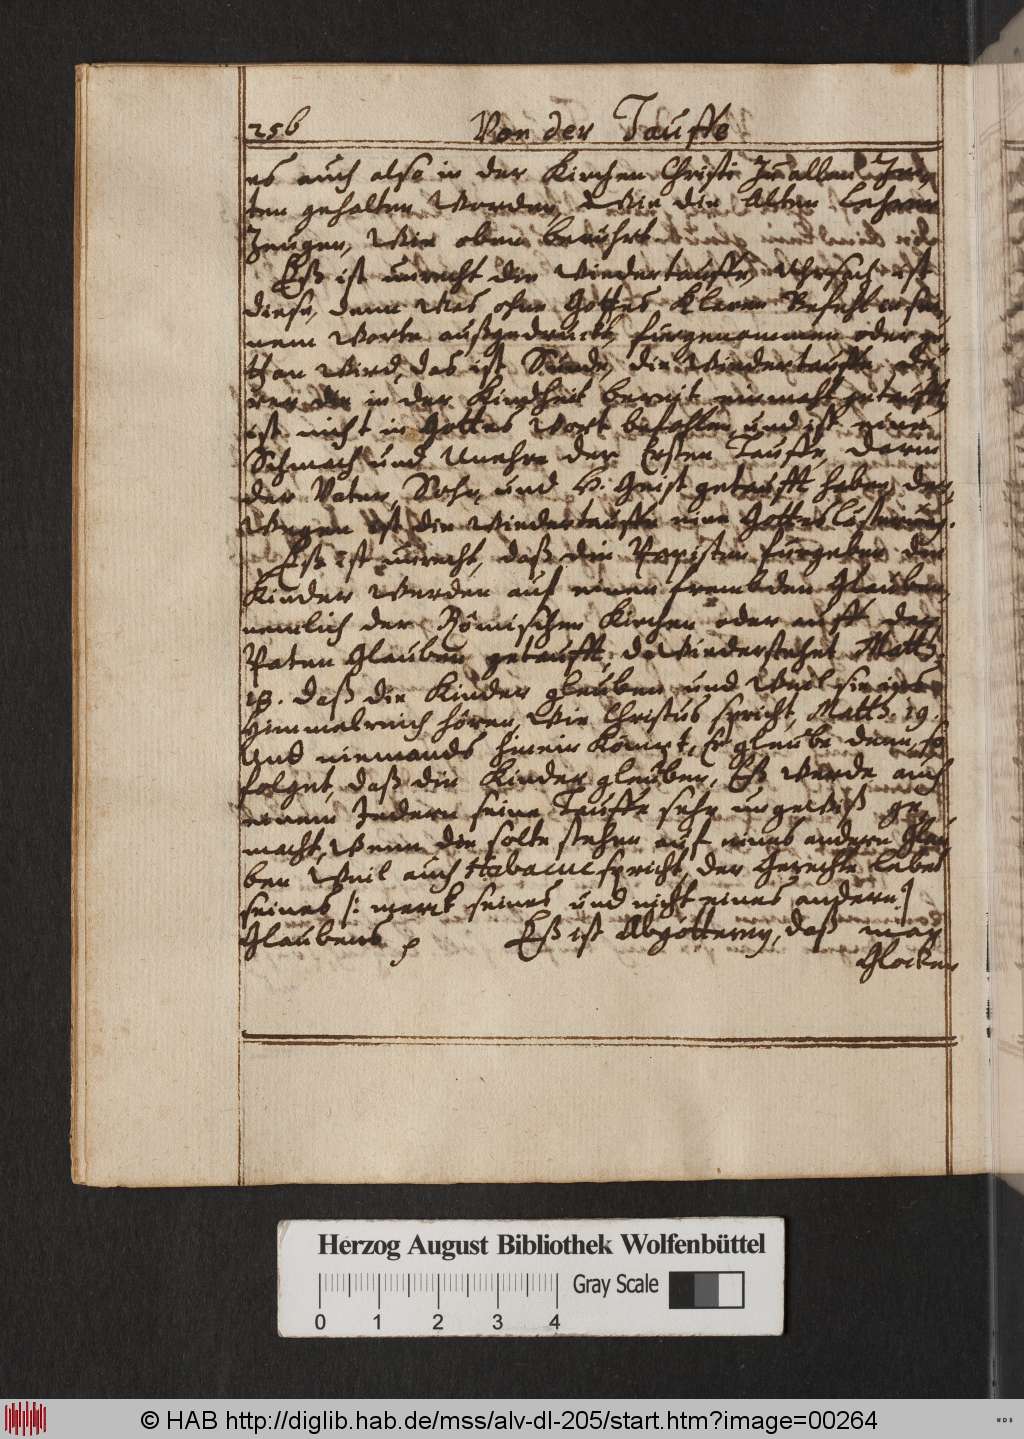 256 Von der Tauffe
es auch also in der Kirchen Christi Zu allen Zei-
ten gehalten worden, Wie die Alten Lehrer
Zeugen, Wie oben berührt
Eß ist unrecht die Wiedertauffe, Uhrsach ist
diese, denn Was ohne Gottes klaren Befehl in sei-
nem Worte außgedruckt, furgenommen oder ge-
than Wird, das ist Sünde, die Wiedertauffe
rer die in der Kindheit bereit einmahl getaufft,
ist nicht in Gottes Wort befohlen, und ist eine
Schmach und Unehre der Ersten Tauffe, darin
der Vater, Sohn, und H. Geist getaufft haben, der-
wegen ist die Wiedertauffe eine Gotteslästerung.
Eß ist unrecht, daß die Papisten furgeben die
Kinder Werden auf einen frembden Glauben,
nemlich der Römischen Kirchen oder auff der
Paten Glauben getaufft, da Wiederstehet Matth.
18. daß die Kinder gleuben und Weil sie ins
Himmelreich hören, Wie Christus spricht, Matth. 19.
Und niemands hinein kömpt, Er gleube denn, so
folget, daß die Kinder gleuben, Eß Werde auch
einem Jedern seine Tauffe sehr ungewiß ge-
macht, Wenn die solte stehen auf eines andern Glau-
ben Weil auch Habacuc spricht, der Gerechte lebet
seines /: merck seines und nicht eines andern :/
Glaubens Eß ist Abgötterey, daß man
Glocken
Herzog August Bibliothek Wolfenbüttel
Gray Scale
0 1 2 3 4
© HAB http://diglib.hab.de/mss/alv-dl-205/start.htm?image=00264